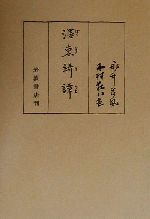 永井荷風
木村荘八画
濹東綺譚
岩波書店刊